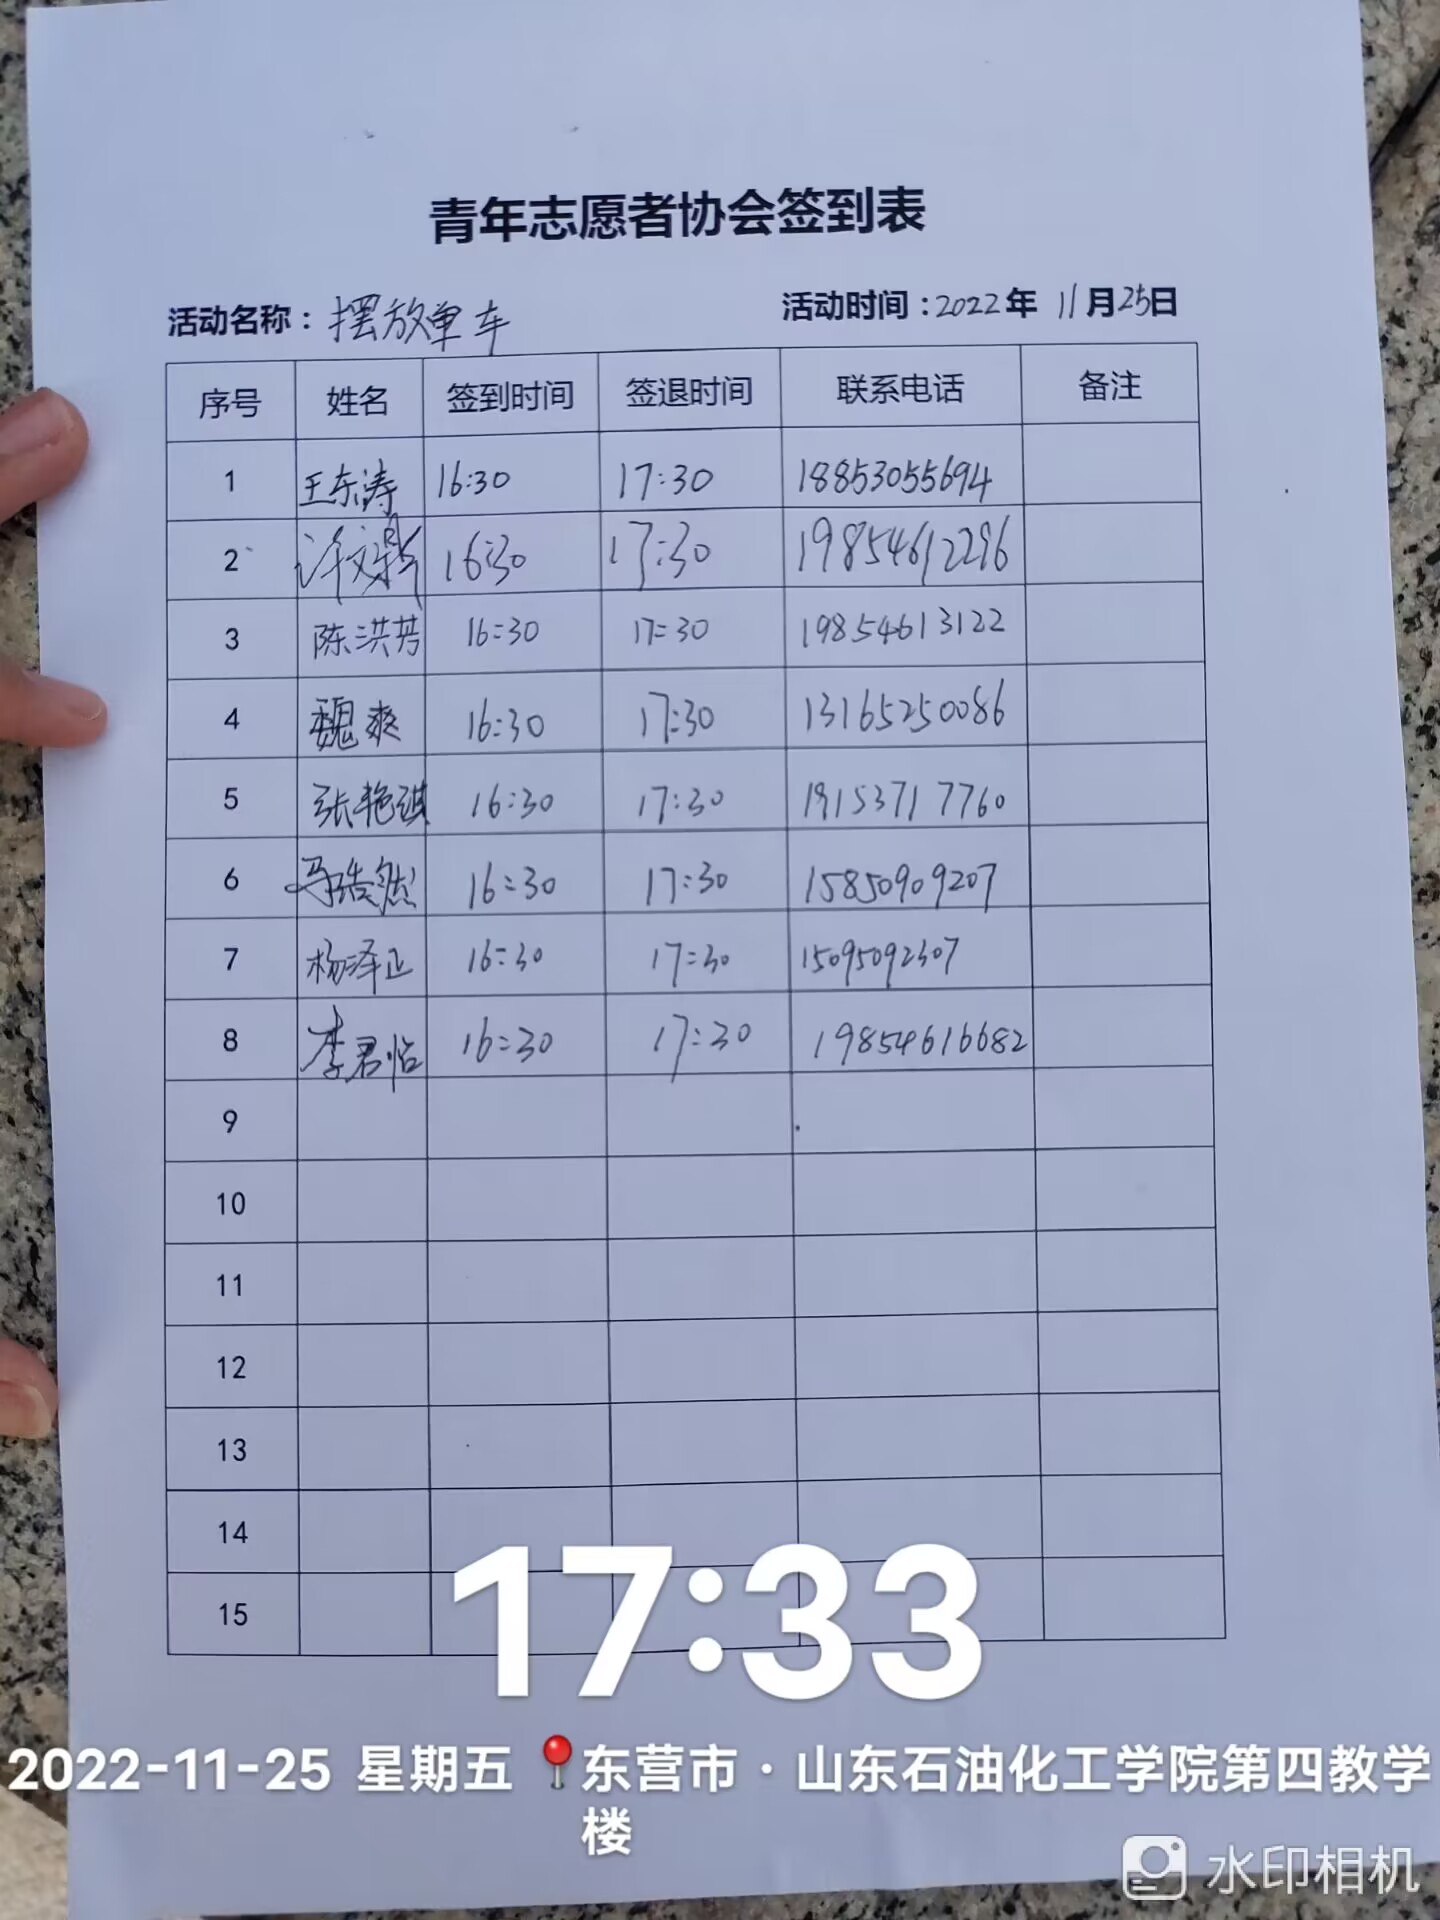 青年志愿者协会签到表
活动名称：摆放单车 活动时间：2022年 11月25日
序号 姓名 签到时间 签退时间 联系电话 备注
1 王东涛 16:30 17:30 18853055694
2 许文鼎 16:30 17:30 19854612296
3 陈洪芳 16:30 17:30 19854613122
4 魏爽 16:30 17:30 13165250086
5 张艳琪 16:30 17:30 19153717760
6 马浩然 16:30 17:30 15850909207
7 杨泽正 16:30 17:30 15095092307
8 李君怡 16:30 17:30 19854616682
9
10
11
12
13
14
15
17:33
2022-11-25 星期五 东营市·山东石油化工学院第四教学
楼
水印相机